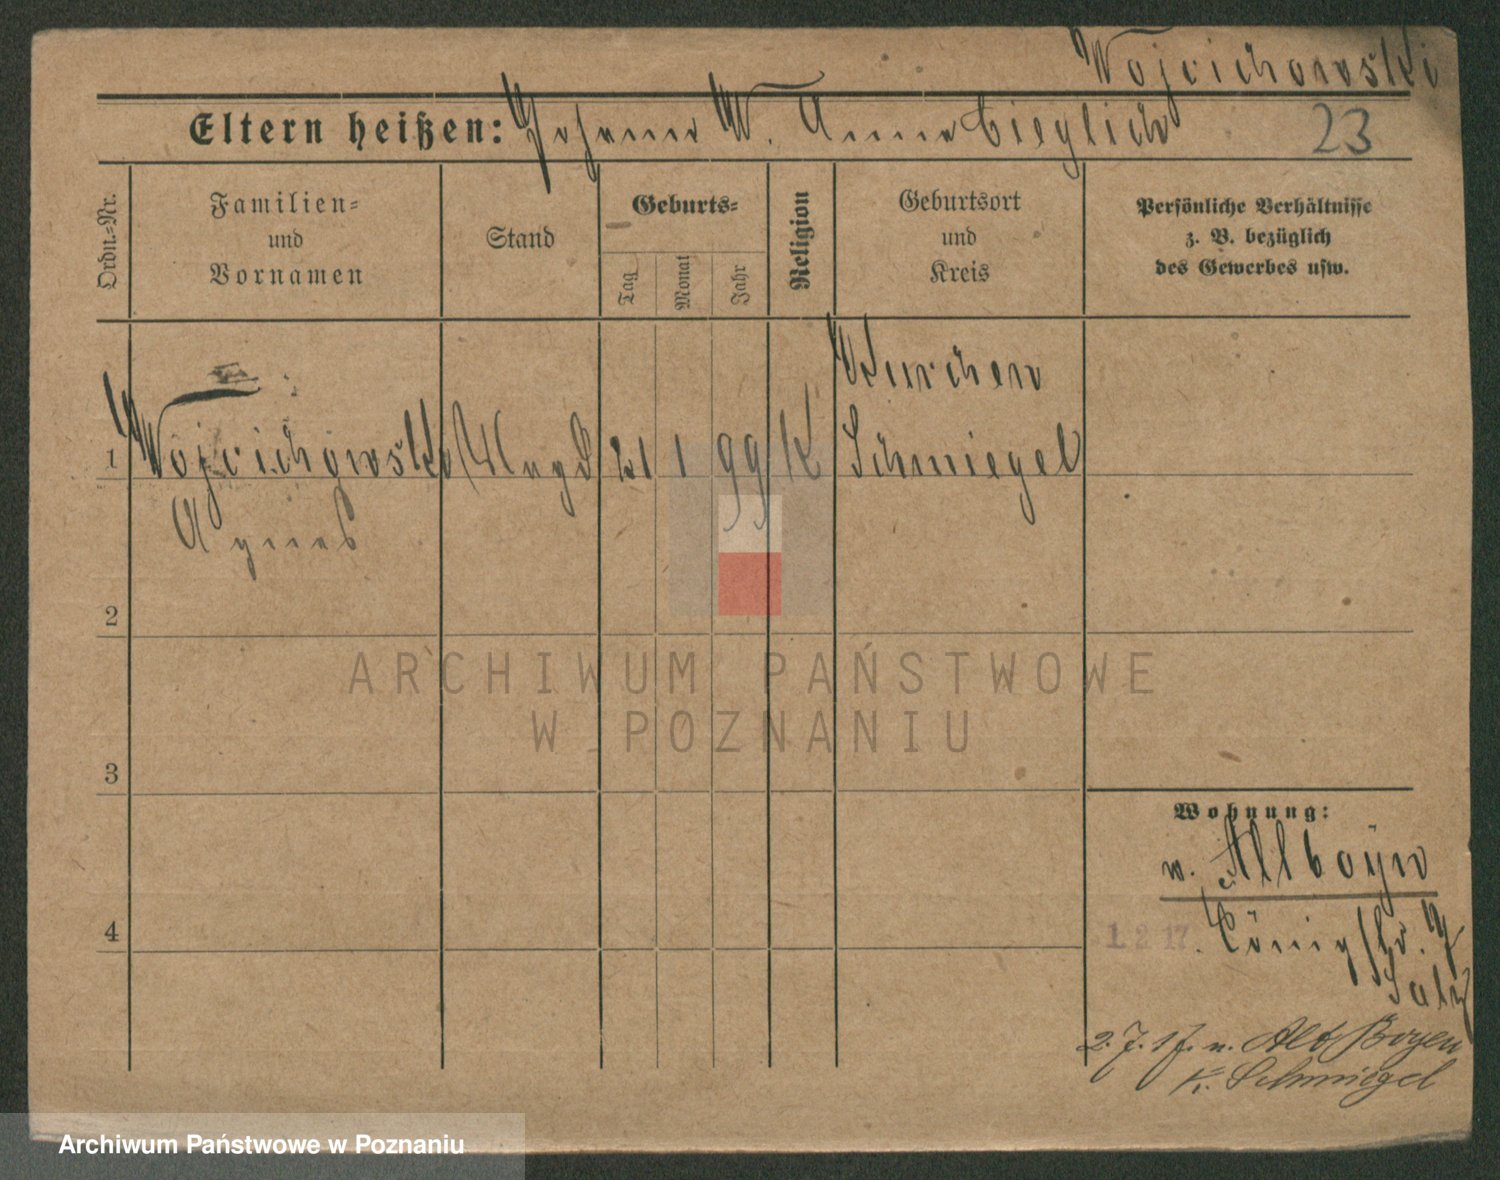 Wojcichowski
Eltern heißen: Johann W. Anna Cieglich
23
Ordn.-Nr.
Familien-
und
Vornamen
Stand
Geburts-
Tag
Monat
Jahr
Religion
Geburtsort
und
Kreis
Persönliche Verhältnisse
z. B. bezüglich
des Gewerbes usw.
1
Wojcichowska
Agnes
Magd
21
1
99
K
Kurchen
Schmiegel
2
3
4
Wohnung:
v. Altboyen
1 2 17. Königstr.
Salz
2. 7. 17. n. Alt Boyen
K. Schmiegel
ARCHIWUM PAŃSTWOWE
W POZNANIU
Archiwum Państwowe w Poznaniu